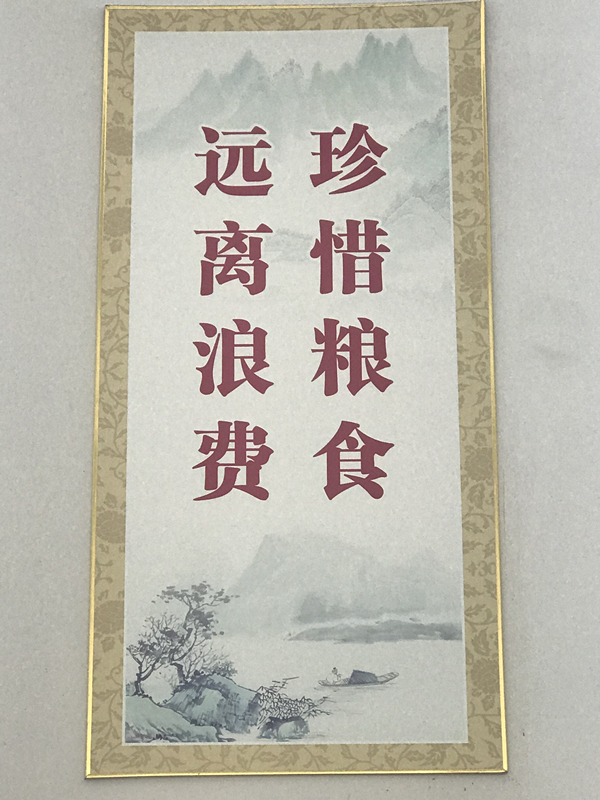 珍惜粮食
远离浪费